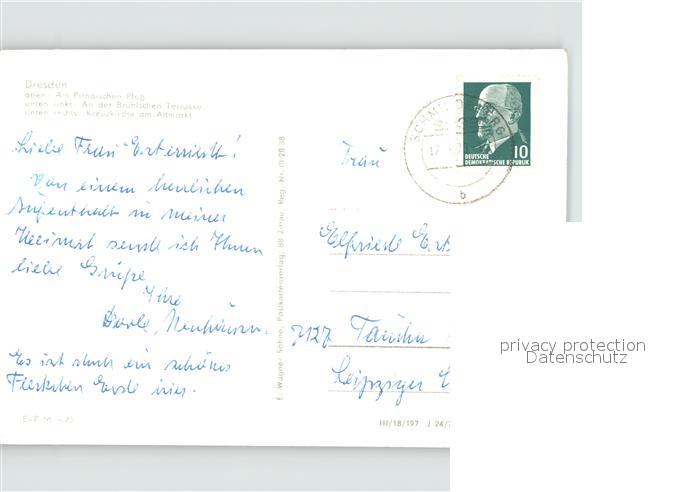 Dresden
oben: Am Pirnaischen Platz
unten links: An der Brühlschen Terrasse
unten rechts: Kreuzkirche am Altmarkt
Liebe Frau
Von einem herrlichen
Aufenthalt in meiner
Heimat sende ich Ihnen
liebe Grüße
Ihre
Es ist doch ein schönes
Fleckchen Erde hier.
EVP M -,25
E. Wagner Söhne, Postkartenverlag, 88 Zittau Reg.-Nr. III/28 38
10
DEUTSCHE
DEMOKRATISCHE REPUBLIK
b
Frau
Elfriede
7127 Taucha
Leipziger
III/18/197 J 24/7
privacy protection
Datenschutz